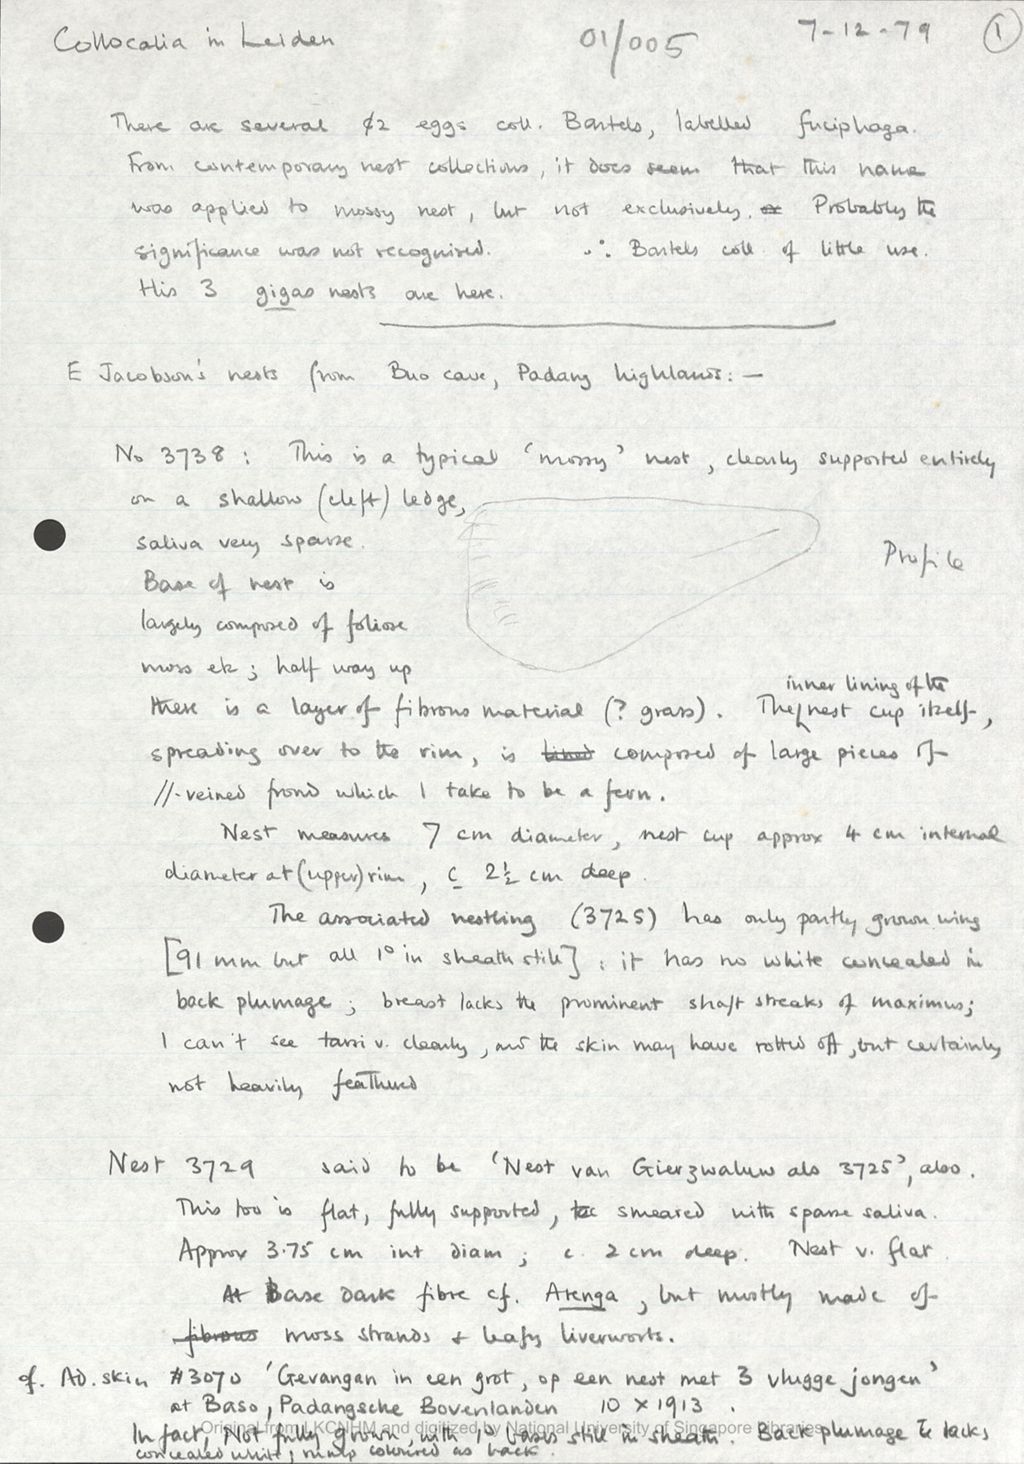 Collocalia in Leiden 01/005 7-12-79 1
There are several ¢2 eggs coll. Bartels, labelled fuciphaga.
From contemporary nest collections, it does seem that this name
was applied to mossy nest, but not exclusively. Probably the
significance was not recognised. ∴ Bartels coll of little use.
His 3 gigas nests are here.
E Jacobson's nests from Buo cave, Padang highlands: —
No 3738 : This is a typical 'mossy' nest, clearly supported entirely
on a shallow (cleft) ledge,
saliva very sparse.
Profile
Base of nest is
largely composed of foliose
moss etc ; half way up
there is a layer of fibrous material (? grass). The inner lining of the nest cup itself,
spreading over to the rim, is lined composed of large pieces of
//-veined frond which I take to be a fern.
Nest measures 7 cm diameter, nest cup approx 4 cm internal
diameter at (upper) rim, c 2½ cm deep.
The associated nestling (3725) has only partly grown wing
[91 mm but all 1° in sheath still] : it has no white concealed in
back plumage ; breast lacks the prominent shaft streaks of maximus;
I can't see tarsi v. clearly, and the skin may have rotted off, but certainly
not heavily feathered
Nest 3729 said to be 'Nest van Gierzwaluw als 3725', also.
This too is flat, fully supported, smeared with sparse saliva.
Approx 3.75 cm int diam ; c. 2 cm deep. Nest v. flat
At Base dark fibre cf. Arenga, but mostly made of
fibrous moss strands + leafy liverworts.
cf. Ad. skin #3070 'Gevangan in een grot, op een nest met 3 vlugge jongen'
at Baso, Padangsche Bovenlanden 10 x 1913.
Original from LKCNHM and digitized by National University of Singapore Libraries
In fact, Not fully grown, with 1° bases still in sheath. Back plumage lacks
concealed white; rump coloured as back.